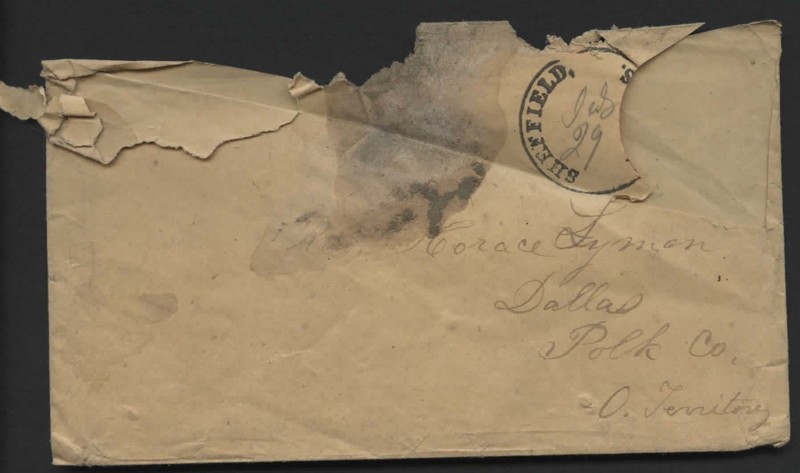 SHEFFIELD,
S.
29
Horace Lyman
Dallas
Polk Co.
O. Territory